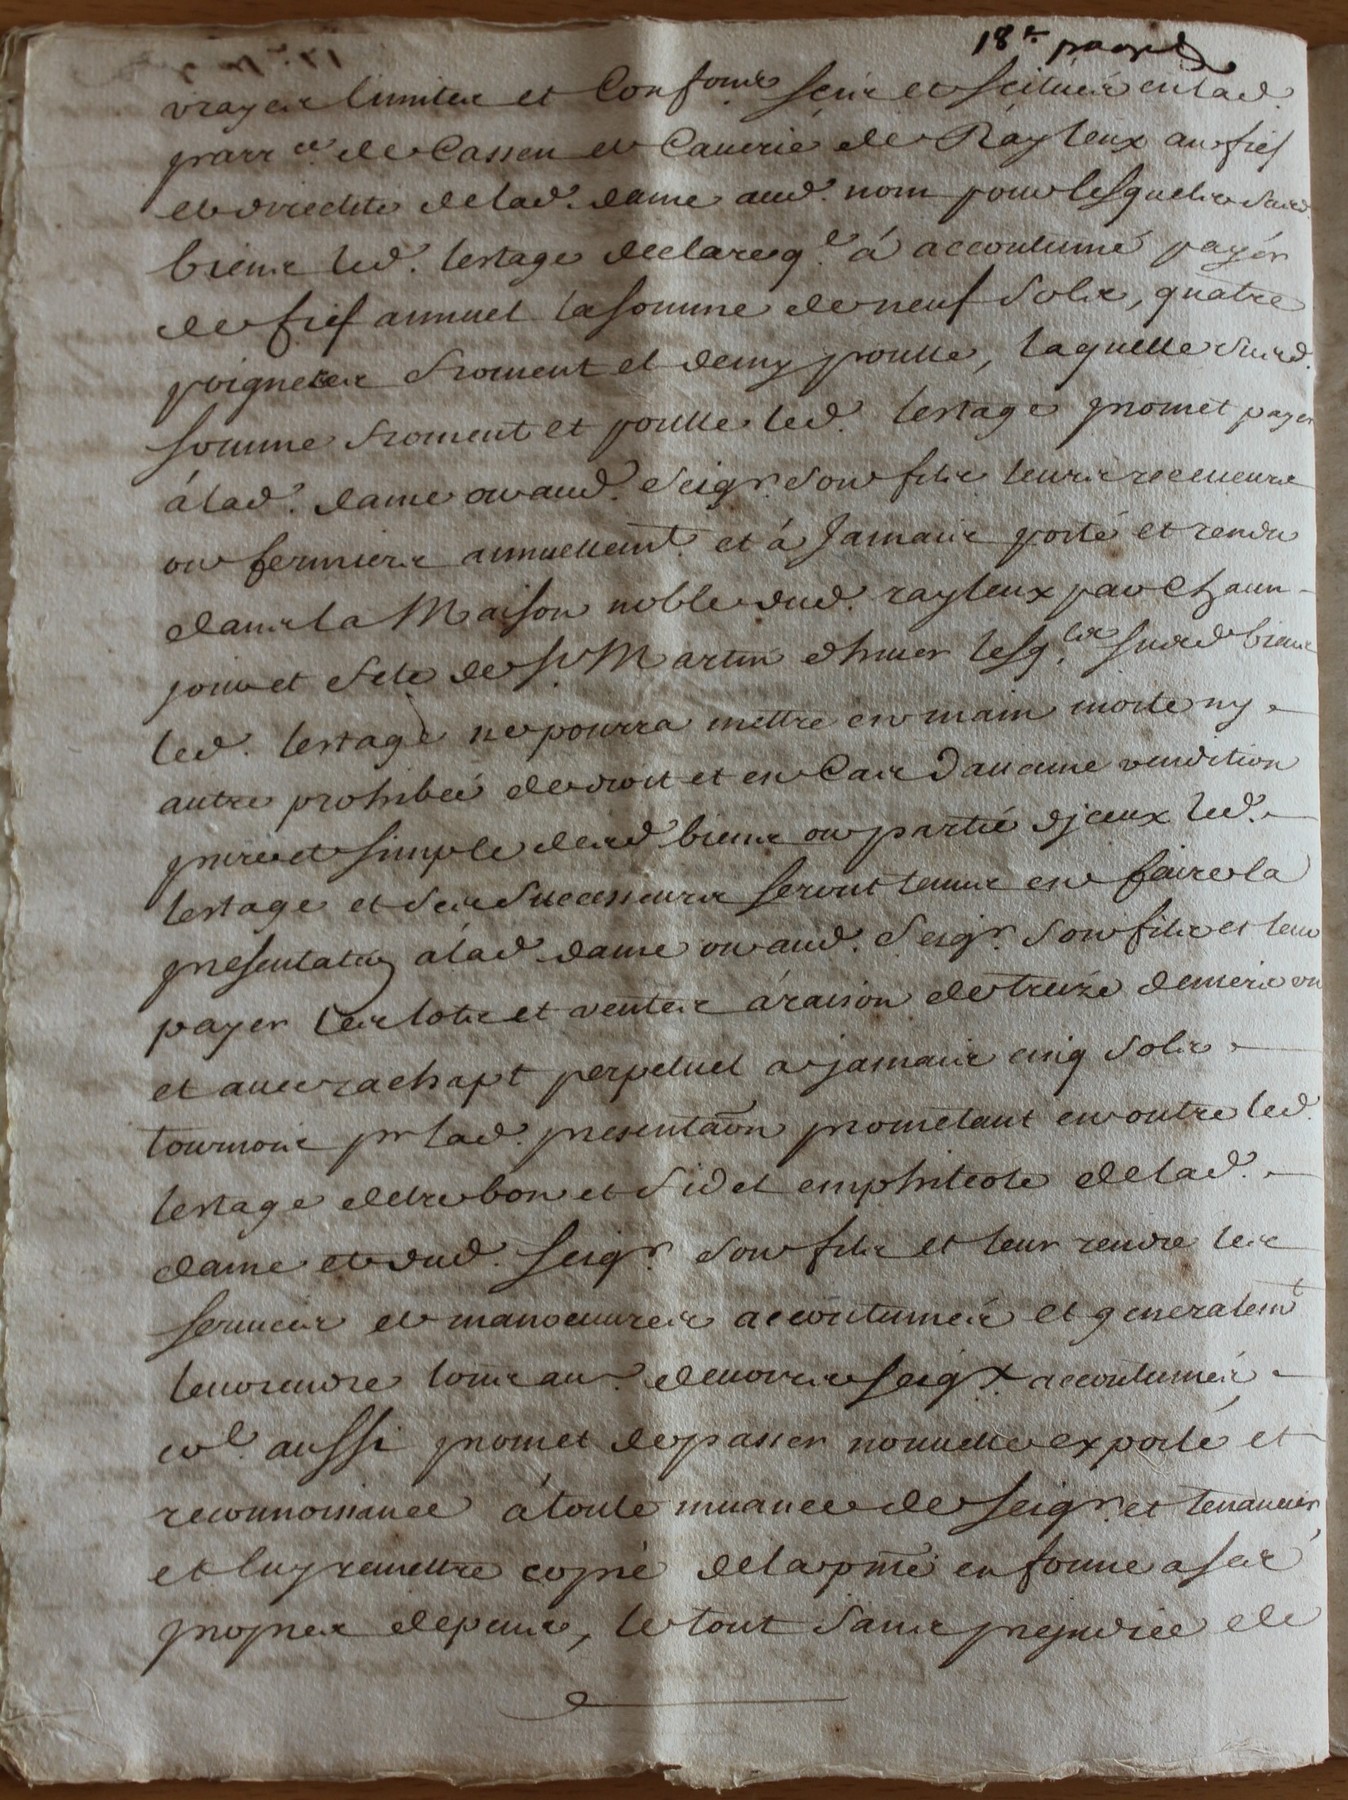 18e page
vrayes limites et Confons seis et scitués en lad.
parr.e de Cassen et Cauerie de Rayleux au fief
et directite de lad. dame aud. nom pour lesquels susd.
biens led. lestage declare q.l á accoutumé payér
de fief annuel la somme de neuf sols, quatre
poigneres froment et demy poulle, laquelle susd.
somme froment et poulle led. lestage promet payer
á lad. dame ou aud. seigr. son fils leurs receueurs
ou fermiers annuellemt. et á Jamais porté et rendu
dans la Maison noble dud. rayleux par Chaun
jour et fete de st Martin dhiuer lesq.ls susd biens
led. lestage ne pourra mettre en main morte ny
autre prohibée de droit et en Cas daucune vendition
pure et simple desd biens ou partie djceux led.
lestage et ses successeurs seront tenus en faire la
presentation á lad dame ou aud. seigr. son fils et leur
payer les lots et ventes á raison de treize deniers un
et auec rachapt perpetuel a jamais cinq sols
tournois pr lad. presentaon prometant en outre led.
lestage detre bon et fidel emphiteote de lad.
dame et dud. seigr. son fils et leur rendre les
seruices et manoeuures accoutumés et generalemt
leur rendre tous au. deuoirs seigx. accoutumés
col. aussi promet de passer nouuelle exporle et
reconnoissance á toute muance de seigr. et tenancier
et luy remettre copie de la pnte en forme a ses
propres depens, le tout sans prejudice de